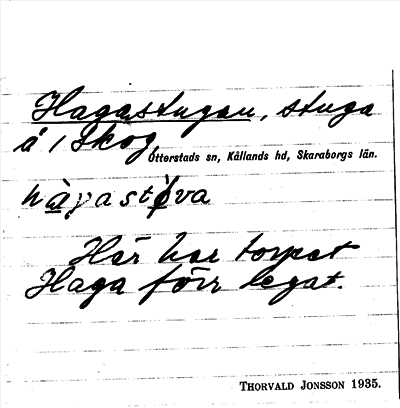 Hagastugan, stuga
å 1 Skog,
Otterstads sn, Kållands hd, Skaraborgs län.
hàgastøva
Här har torpet
Haga förr legat.
THORVALD JONSSON 1935.